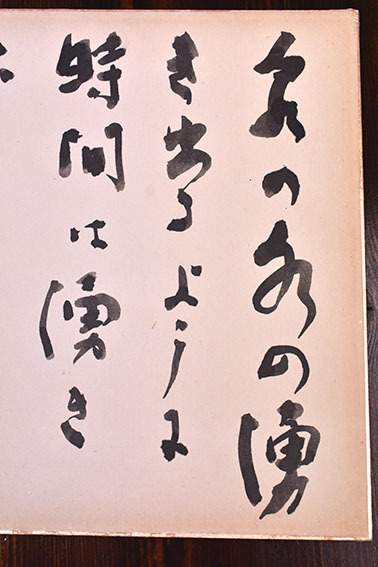 泉の水の湧
き出るように
時間は湧き